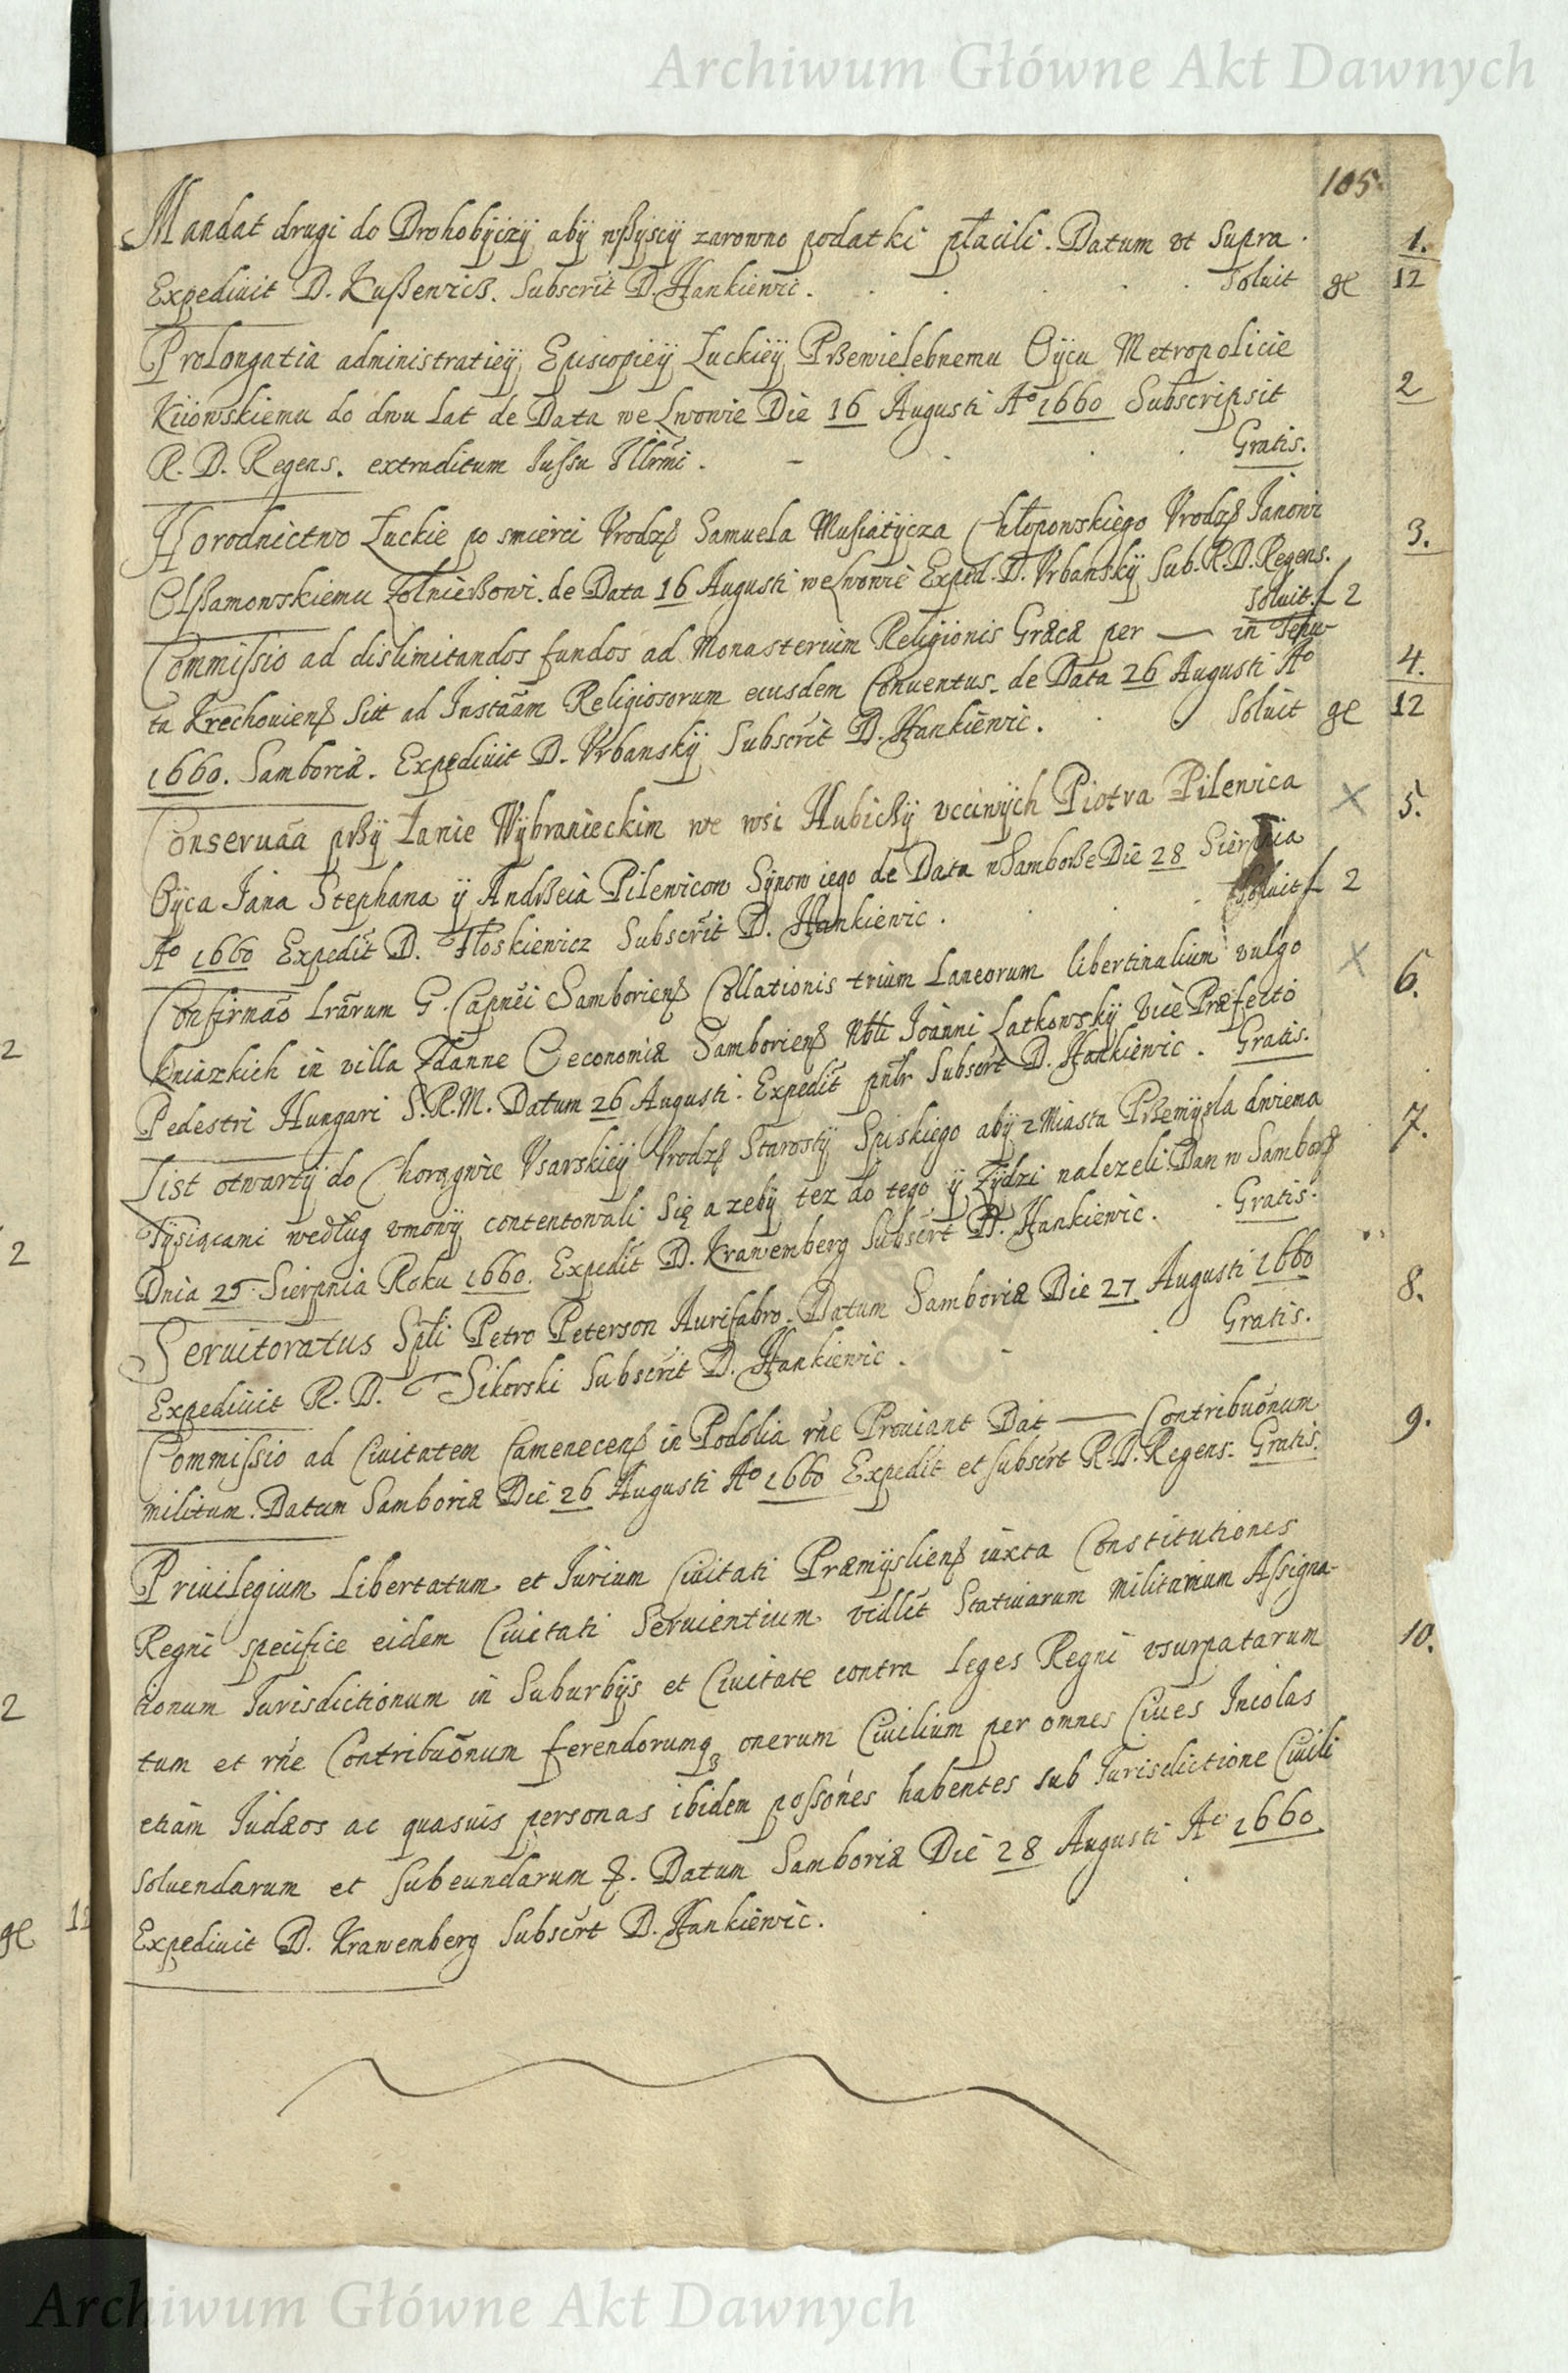 Archiwum Główne Akt Dawnych
105.
Mandat drugi do Drohobyczy aby wßyscy zarowno podatki płacili. Datum ut supra. 1.
Expediuit D. Kußewicß. Subscrit D. Hankiewic. Soluit gl 12
Prolongatia administratiey Episcopiey Łuckiey Przewielebnemu Oycu Metropolicie
Kiiowskiemu do dwu Lat de Data we Lwowie Die 16 Augusti Ao 1660 Subscripsit 2
R. D. Regens. extraditum Iussu Illrmi. Gratis.
Horodnictwo Łuckie po smierci Vrodz Samuela Musiatycza Chłopowskiego Vrodz Janowi 3.
Olßamowskiemu Zołnierzowi. de Data 16 Augusti we Lwowie Exped. D. Vrbansky Sub. R. D. Regens.
Soluit. f 2
Commissio ad dislimitandos fundos ad Monasterium Religionis Græcæ per — in Tenu-
ta Krechouiens sitt ad Instãam Religiosorum eiusdem Conuentus. de Data 26 Augusti Ao 4.
1660. Samboriæ. Expediuit D. Vrbansky Subscrit D. Hankiewic. Soluit gl 12
Conseruãa przy Łanie Wybranieckim we wsi Hubicßy vcciwych Piotra Pilewica × 5.
Oyca Jana Stephana y Andrzeia Pilewicow Synow iego de Data w Samborze Die 28 Sierpnia
Ao 1660 Expedit D. Tłoskiewicz Subscrit D. Hankiewic. Soluit f 2
Confirmão Lrãrum G. Capnei Samboriens Collationis trium Laneorum libertinalium vulgo × 6.
kniazkich in villa Zdanne Oeconomiæ Samboriens Nbli Joanni Latkowsky Vice Præfecto
Pedestri Hungari S. R. M. Datum 26 Augusti. Expedit pntr Subscrt D. Hankiewic. Gratis.
List otwarty do Chorągwie Vsarskiey Vrodz Starosty Spiskiego aby z Miasta Przemysla dwiema 7.
Tysiącami według vmowy contentowali się a zeby tez do tego y Zydzi nalezeli. Dan w Samborz
Dnia 25 Sierpnia Roku 1660. Expedit D. Krawemberg Subscrt D. Hankiewic. Gratis.
Seruitoratus Spli Petro Peterson Aurifabro. Datum Samboriæ Die 27 Augusti 1660 8.
Expediuit R. D. Sikorski Subscrit D. Hankiewic. Gratis.
Commissio ad Ciuitatem Camenecens in Podolia rñe Prouiant Dat — Contribuõnum 9.
militum. Datum Samboriæ Die 26 Augusti Ao 1660 Expedit et subscrt R. D. Regens. Gratis.
Priuilegium Libertatum et Jurium Ciuitati Præmysliens iuxta Constitutiones
Regni specifice eidem Ciuitati Seruientium vidllt Statiuarum militarium Assigna- 10.
tionum Jurisdictionum in Suburbijs et Ciuitate contra Leges Regni vsurpatarum
tum et rñe Contribuõnum ferendorumq3 onerum Ciuilium per omnes Ciues Incolas
etiam Judæos ac quasuis personas ibidem possónes habentes sub Jurisdictione Ciuili
Soluendarum et subeundarum &. Datum Samboriæ Die 28 Augusti Ao 1660.
Expediuit D. Krawemberg Subscrt D. Hankiewic.
2
2
2
gl
Archiwum Główne Akt Dawnych